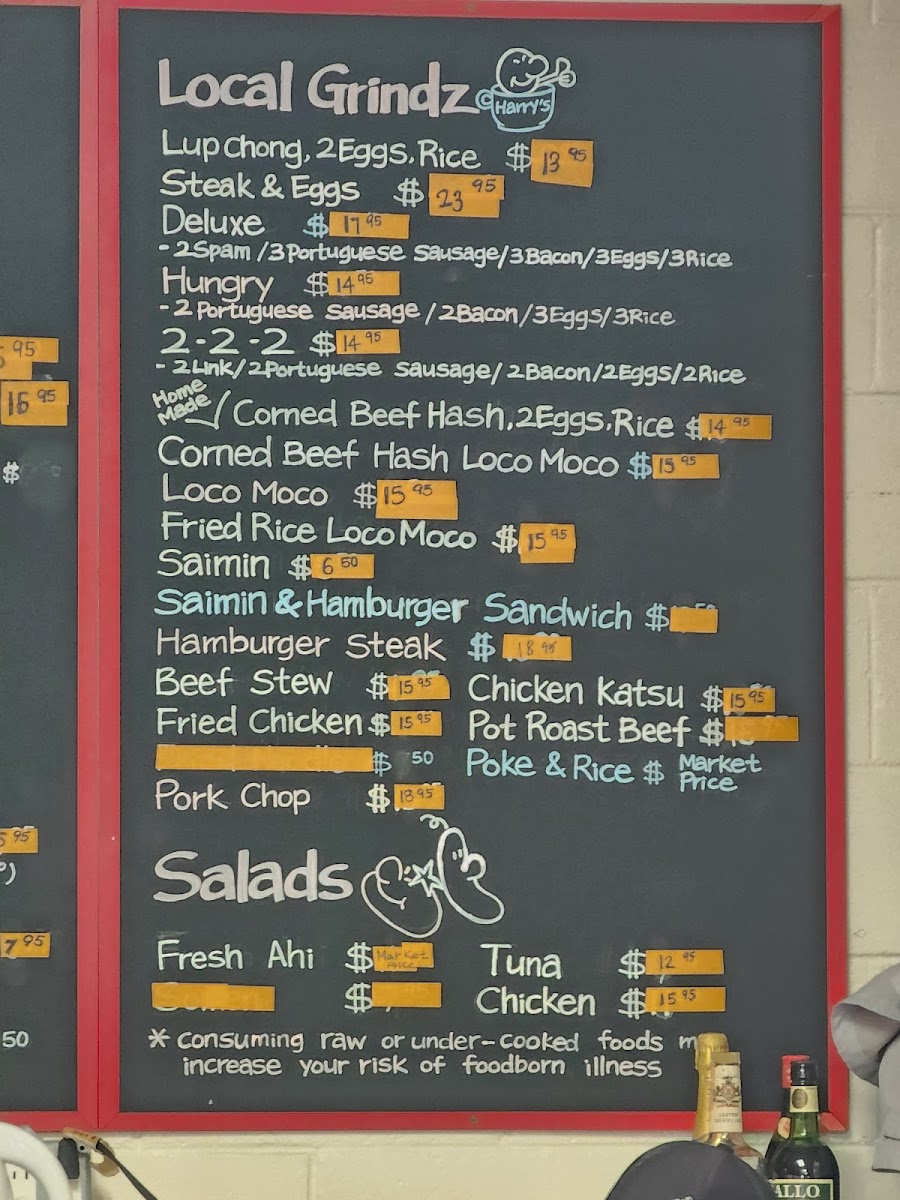 Local Grindz
© Harry's
Lup chong, 2 Eggs, Rice $ 13 95
Steak & Eggs $ 23 95
Deluxe $ 17 95
- 2 Spam / 3 Portuguese Sausage / 3 Bacon / 3 Eggs / 3 Rice
Hungry $ 14 95
- 2 Portuguese Sausage / 2 Bacon / 3 Eggs / 3 Rice
2-2-2 $ 14 95
- 2 Link / 2 Portuguese Sausage / 2 Bacon / 2 Eggs / 2 Rice
Home Made Corned Beef Hash, 2 Eggs, Rice $ 14 95
Corned Beef Hash Loco Moco $ 15 95
Loco Moco $ 15 95
Fried Rice Loco Moco $ 15 95
Saimin $ 6 50
Saimin & Hamburger Sandwich $
Hamburger Steak $ 18 95
Beef Stew $ 15 95
Chicken Katsu $ 15 95
Fried Chicken $ 15 95
Pot Roast Beef $
$ 50
Poke & Rice $ Market Price
Pork Chop $ 18 95
Salads
Fresh Ahi $ Market Price
Tuna $ 12 95
$
Chicken $ 15 95
* consuming raw or under-cooked foods
increase your risk of foodborn illness
95
16 95
$
95
7 95
50
ALLO